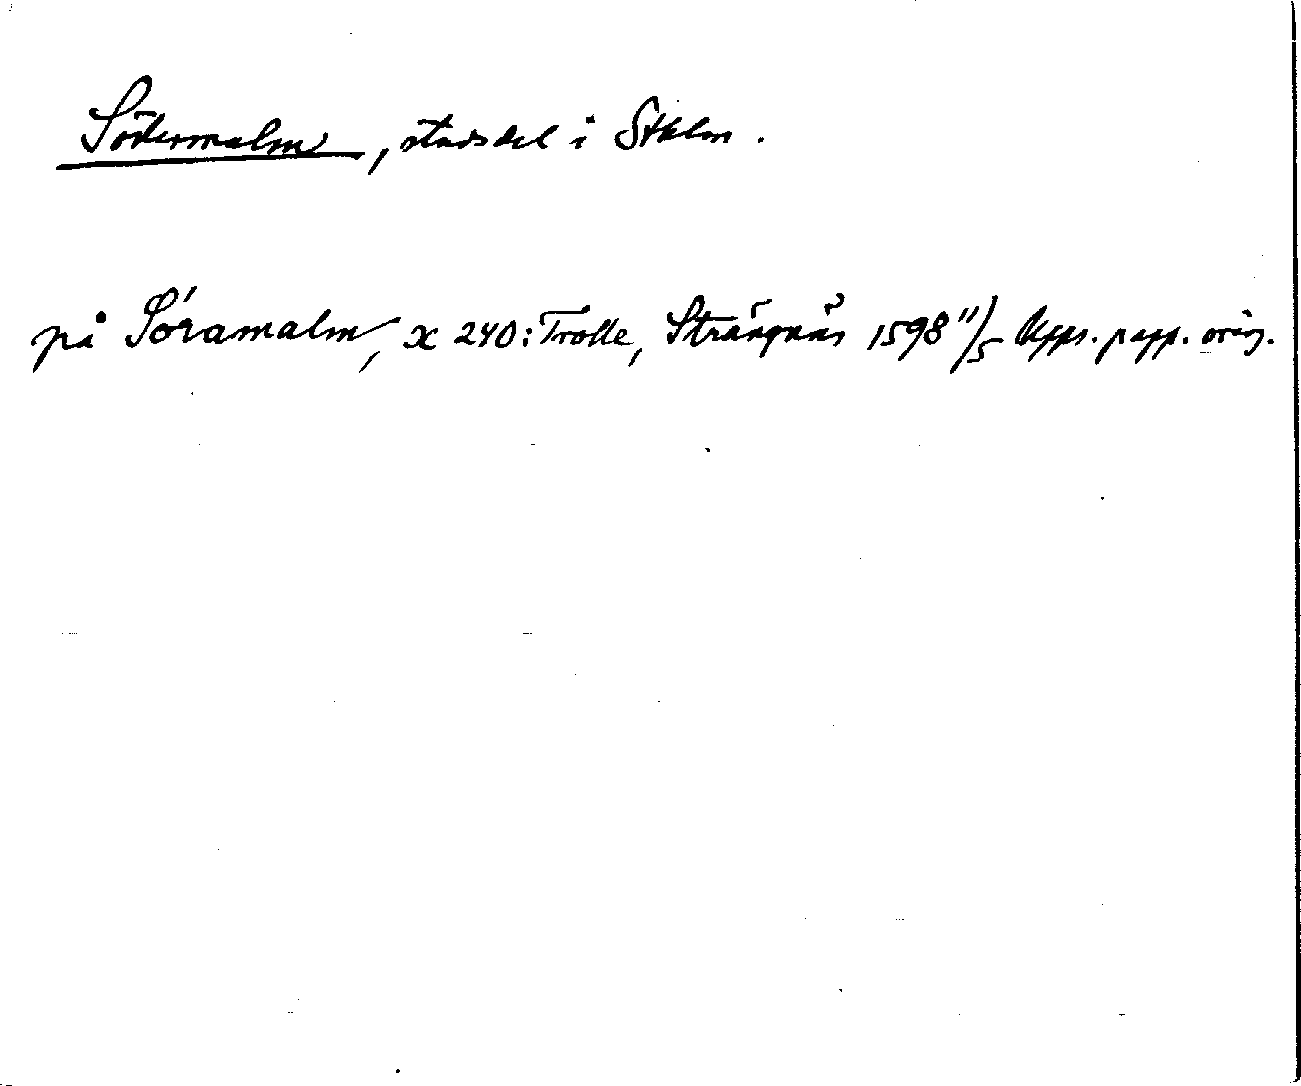 Södermalm, stadsdel i Sthlm.
på Sóramalm, x 240: Trolle, Strängnäs 1598 11/5 Upps. papp. orig.